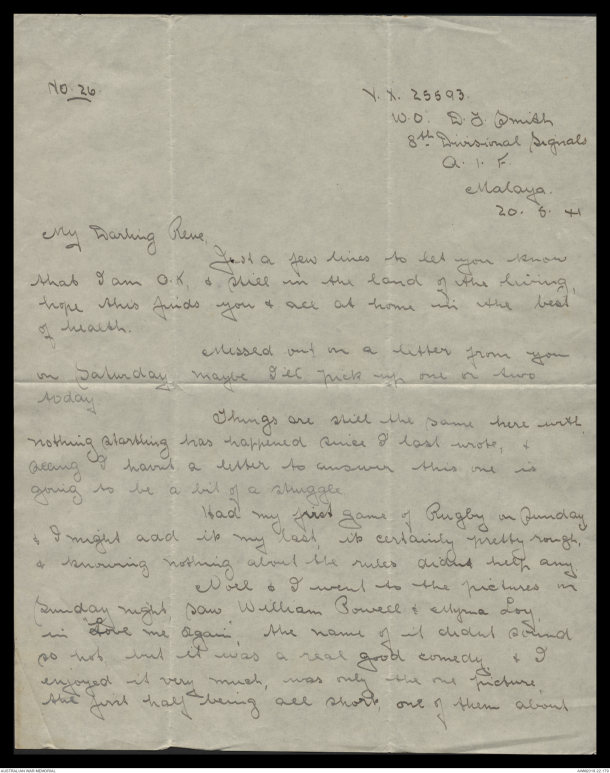 NO. 26.
V.X. 25593.
W.O. D.J. Smith
8th Divisional Signals
A. I. F.
Malaya.
20. 8. 41
My Darling Rene,
Just a few lines to let you know
that I am O.K. & still in the land of the living,
hope this finds you & all at home in the best
of health.
Missed out on a letter from you
on Saturday maybe I'll pick up one or two
today.
Things are still the same here with
nothing startling has happened since I last wrote, &
seeing I havnt a letter to answer this one is
going to be a bit of a struggle
Had my first game of Rugby on Sunday
& I might add it my last, it certainly pretty rough,
& knowing nothing about the rules didnt help any.
Noel & I went to the pictures on
Sunday night, saw William Powell & Myrna Loy,
in "Love me Again", the name of it didnt sound
so hot, but it was a real good comedy, & I
enjoyed it very much, was only the one picture,
the first half being all short, one of them about
AUSTRALIAN WAR MEMORIAL